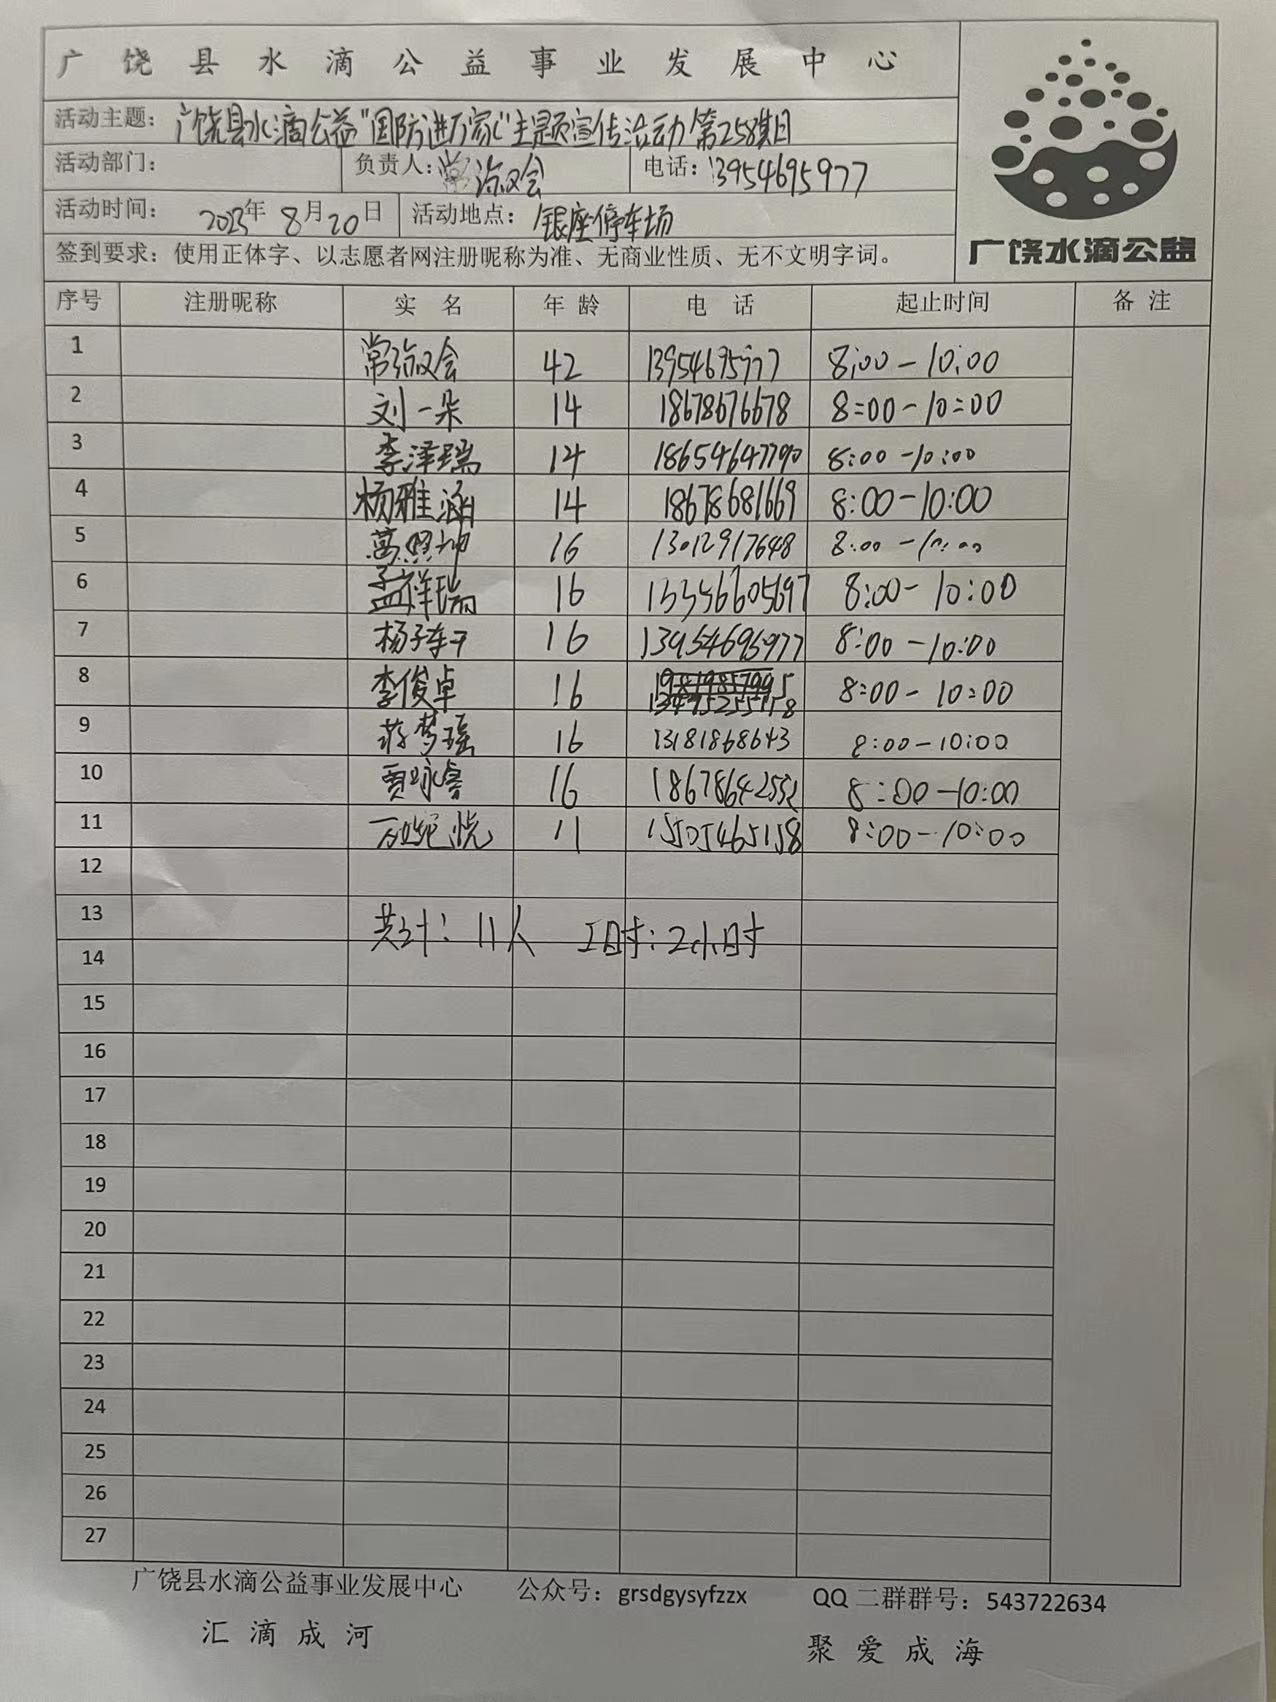 广饶县水滴公益事业发展中心
活动主题：广饶县水滴公益"国防进万家"主题宣传活动第258集日
活动部门： 负责人：常 会 电话：13954695977
活动时间：2023年8月20日 活动地点：银座停车场
签到要求：使用正体字、以志愿者网注册昵称为准、无商业性质、无不文明字词。
广饶水滴公益
序号 注册昵称 实名 年龄 电话 起止时间 备注
1 常 会 42 13954695977 8:00-10:00
2 刘一朵 14 18678676678 8:00-10:00
3 李泽瑞 14 18654647790 8:00-10:00
4 杨雅涵 14 18678681669 8:00-10:00
5 16 13012917648 8:00-10:00
6 孟祥瑞 16 13356605697 8:00-10:00
7 杨子 16 13954695977 8:00-10:00
8 李俊卓 16 8:00-10:00
9 蒋梦瑶 16 13181868643 8:00-10:00
10 贾咏睿 16 18678642552 8:00-10:00
11 11 1505465158 8:00-10:00
12
13
共计：11人 工时：2小时
14
15
16
17
18
19
20
21
22
23
24
25
26
27
广饶县水滴公益事业发展中心 公众号：grsdgysyfzzx QQ二群群号：543722634
汇滴成河 聚爱成海